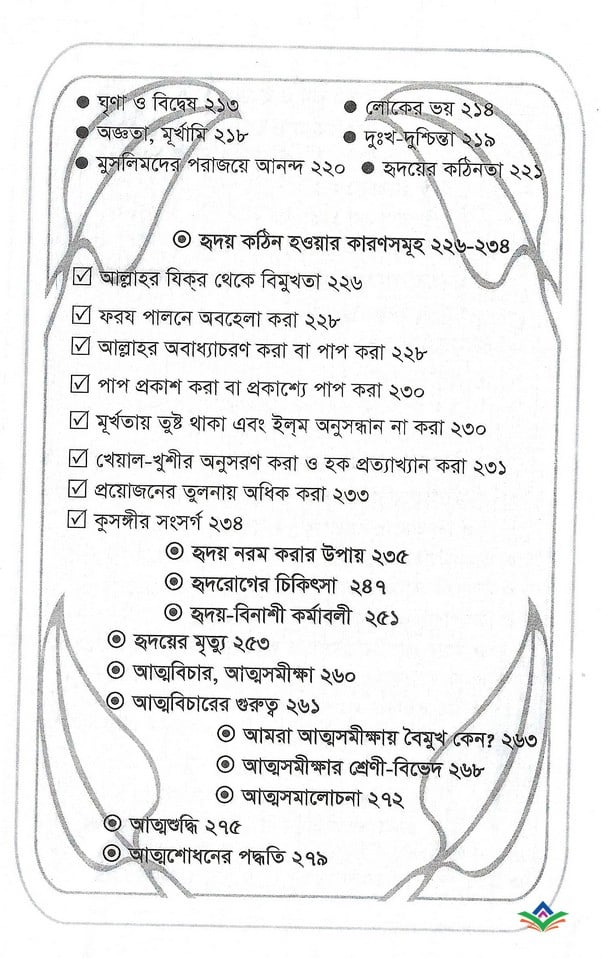 ● ঘৃণা ও বিদ্বেষ ২১৩ ● লোকের ভয় ২১৪
● অজ্ঞতা, মূর্খামি ২১৮ ● দুঃখ-দুশ্চিন্তা ২১৯
● মুসলিমদের পরাজয়ে আনন্দ ২২০ ● হৃদয়ের কঠিনতা ২২১
◉ হৃদয় কঠিন হওয়ার কারণসমূহ ২২৬-২৩৪
☑ আল্লাহর যিক্‌র থেকে বিমুখতা ২২৬
☑ ফরয পালনে অবহেলা করা ২২৮
☑ আল্লাহর অবাধ্যাচরণ করা বা পাপ করা ২২৮
☑ পাপ প্রকাশ করা বা প্রকাশ্যে পাপ করা ২৩০
☑ মূর্খতায় তুষ্ট থাকা এবং ইল্‌ম অনুসন্ধান না করা ২৩০
☑ খেয়াল-খুশীর অনুসরণ করা ও হক প্রত্যাখ্যান করা ২৩১
☑ প্রয়োজনের তুলনায় অধিক করা ২৩৩
☑ কুসঙ্গীর সংসর্গ ২৩৪
◉ হৃদয় নরম করার উপায় ২৩৫
◉ হৃদরোগের চিকিৎসা ২৪৭
◉ হৃদয়-বিনাশী কর্মাবলী ২৫১
◉ হৃদয়ের মৃত্যু ২৫৩
◉ আত্মবিচার, আত্মসমীক্ষা ২৬০
◉ আত্মবিচারের গুরুত্ব ২৬১
◉ আমরা আত্মসমীক্ষায় বৈমুখ কেন? ২৬৩
◉ আত্মসমীক্ষার শ্রেণী-বিভেদ ২৬৮
◉ আত্মসমালোচনা ২৭২
◉ আত্মশুদ্ধি ২৭৫
◉ আত্মশোধনের পদ্ধতি ২৭৯